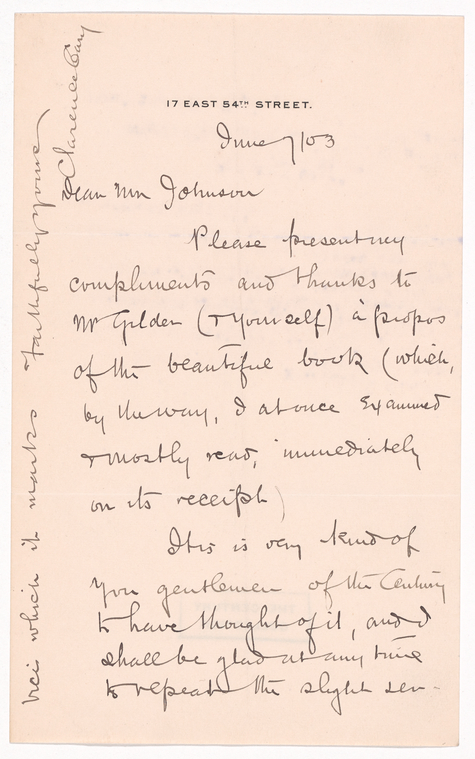 17 EAST 54TH STREET.
June 7/03
Dear Mr Johnson
Please present my
compliments and thanks to
Mr Gilder (& yourself) à propos
of the beautiful book (which,
by the way, I at once examined
& mostly read, immediately
on its receipt)
It is very kind of
you gentlemen of the Century
to have thought of it, and I
shall be glad at any time
to repeat the slight ser-
vice which it marks Faithfully yours
Clarence Cary